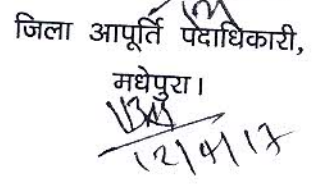 जिला आपूर्ति पदाधिकारी,
मधेपुरा।
12/4/17